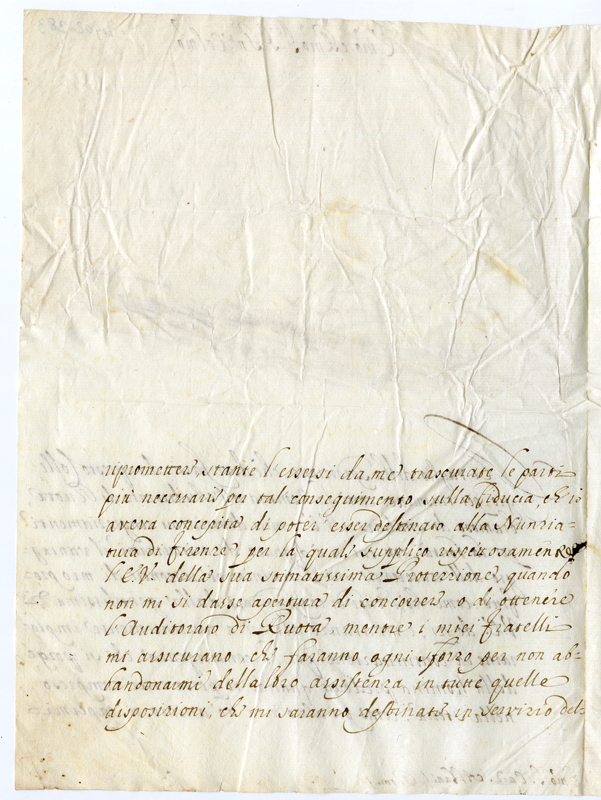 ripromettere, stante l'essersi da me trascurate le parti
più necessarie per tal conseguimento sulla fiducia, ch'io
aveva concepita di poter esser destinato alla Nunzia-
tura di firenze, per la quale supplico rispettosamente
l'E.V. della sua stimatissima Protezzione, quando
non mi si dasse apertura di concorrere, o di ottenere
l'Auditorato di Ruota, mentre i miei fratelli
mi assicurano che faranno ogni sforzo per non ab-
bandonarmi della loro assistenza in tutte quelle
disposizioni, che mi saranno destinate in servizio del-